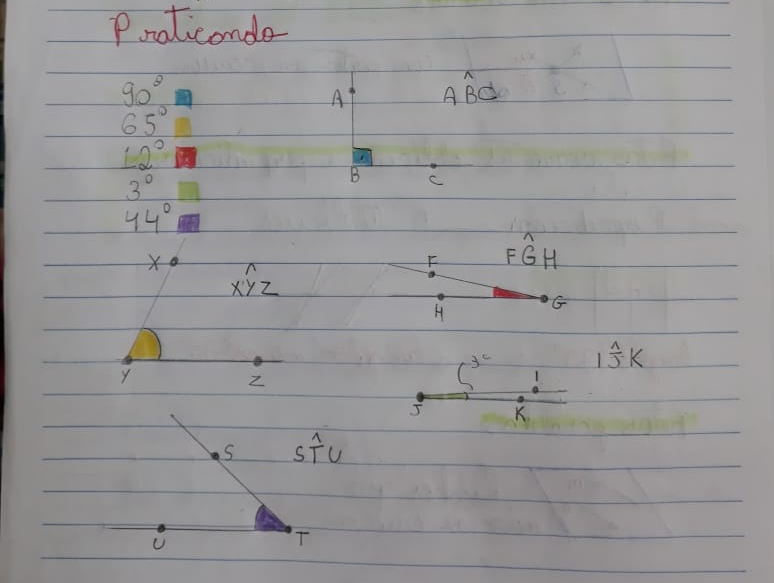 Praticando
90°
65°
12°
3°
44°
A
AB̂C
B
C
X
XŶZ
Y
Z
F
FĜH
H
G
3°
I
IĴK
J
K
S
ST̂U
U
T